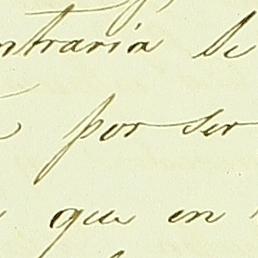 ntraria de
por ser
que en